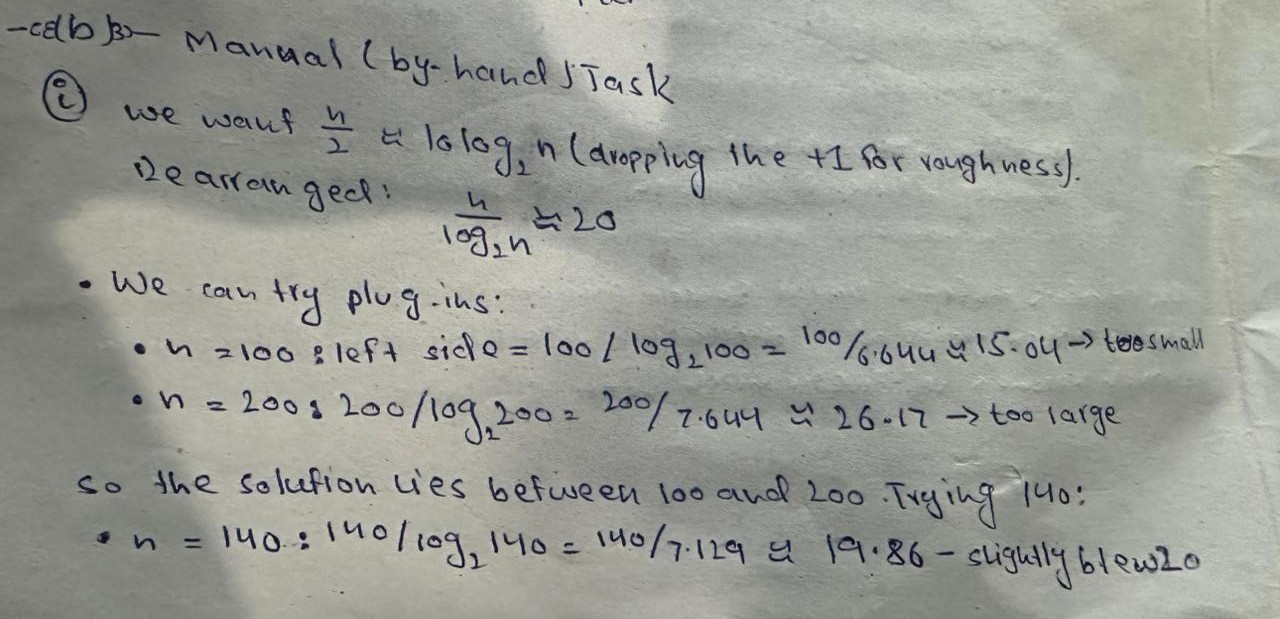 Manual (by-hand) Task
(i) we want n/2 ≈ 10log₂n (dropping the +1 for roughness).
Rearranged: n/log₂n ≈ 20
• We can try plug-ins:
• n = 100 : left side = 100 / log₂100 = 100/6.644 ≈ 15.04 → too small
• n = 200 : 200/log₂200 = 200/7.644 ≈ 26.17 → too large
so the solution lies between 100 and 200. Trying 140:
• n = 140 : 140/log₂140 = 140/7.129 ≈ 19.86 – slightly blew 20